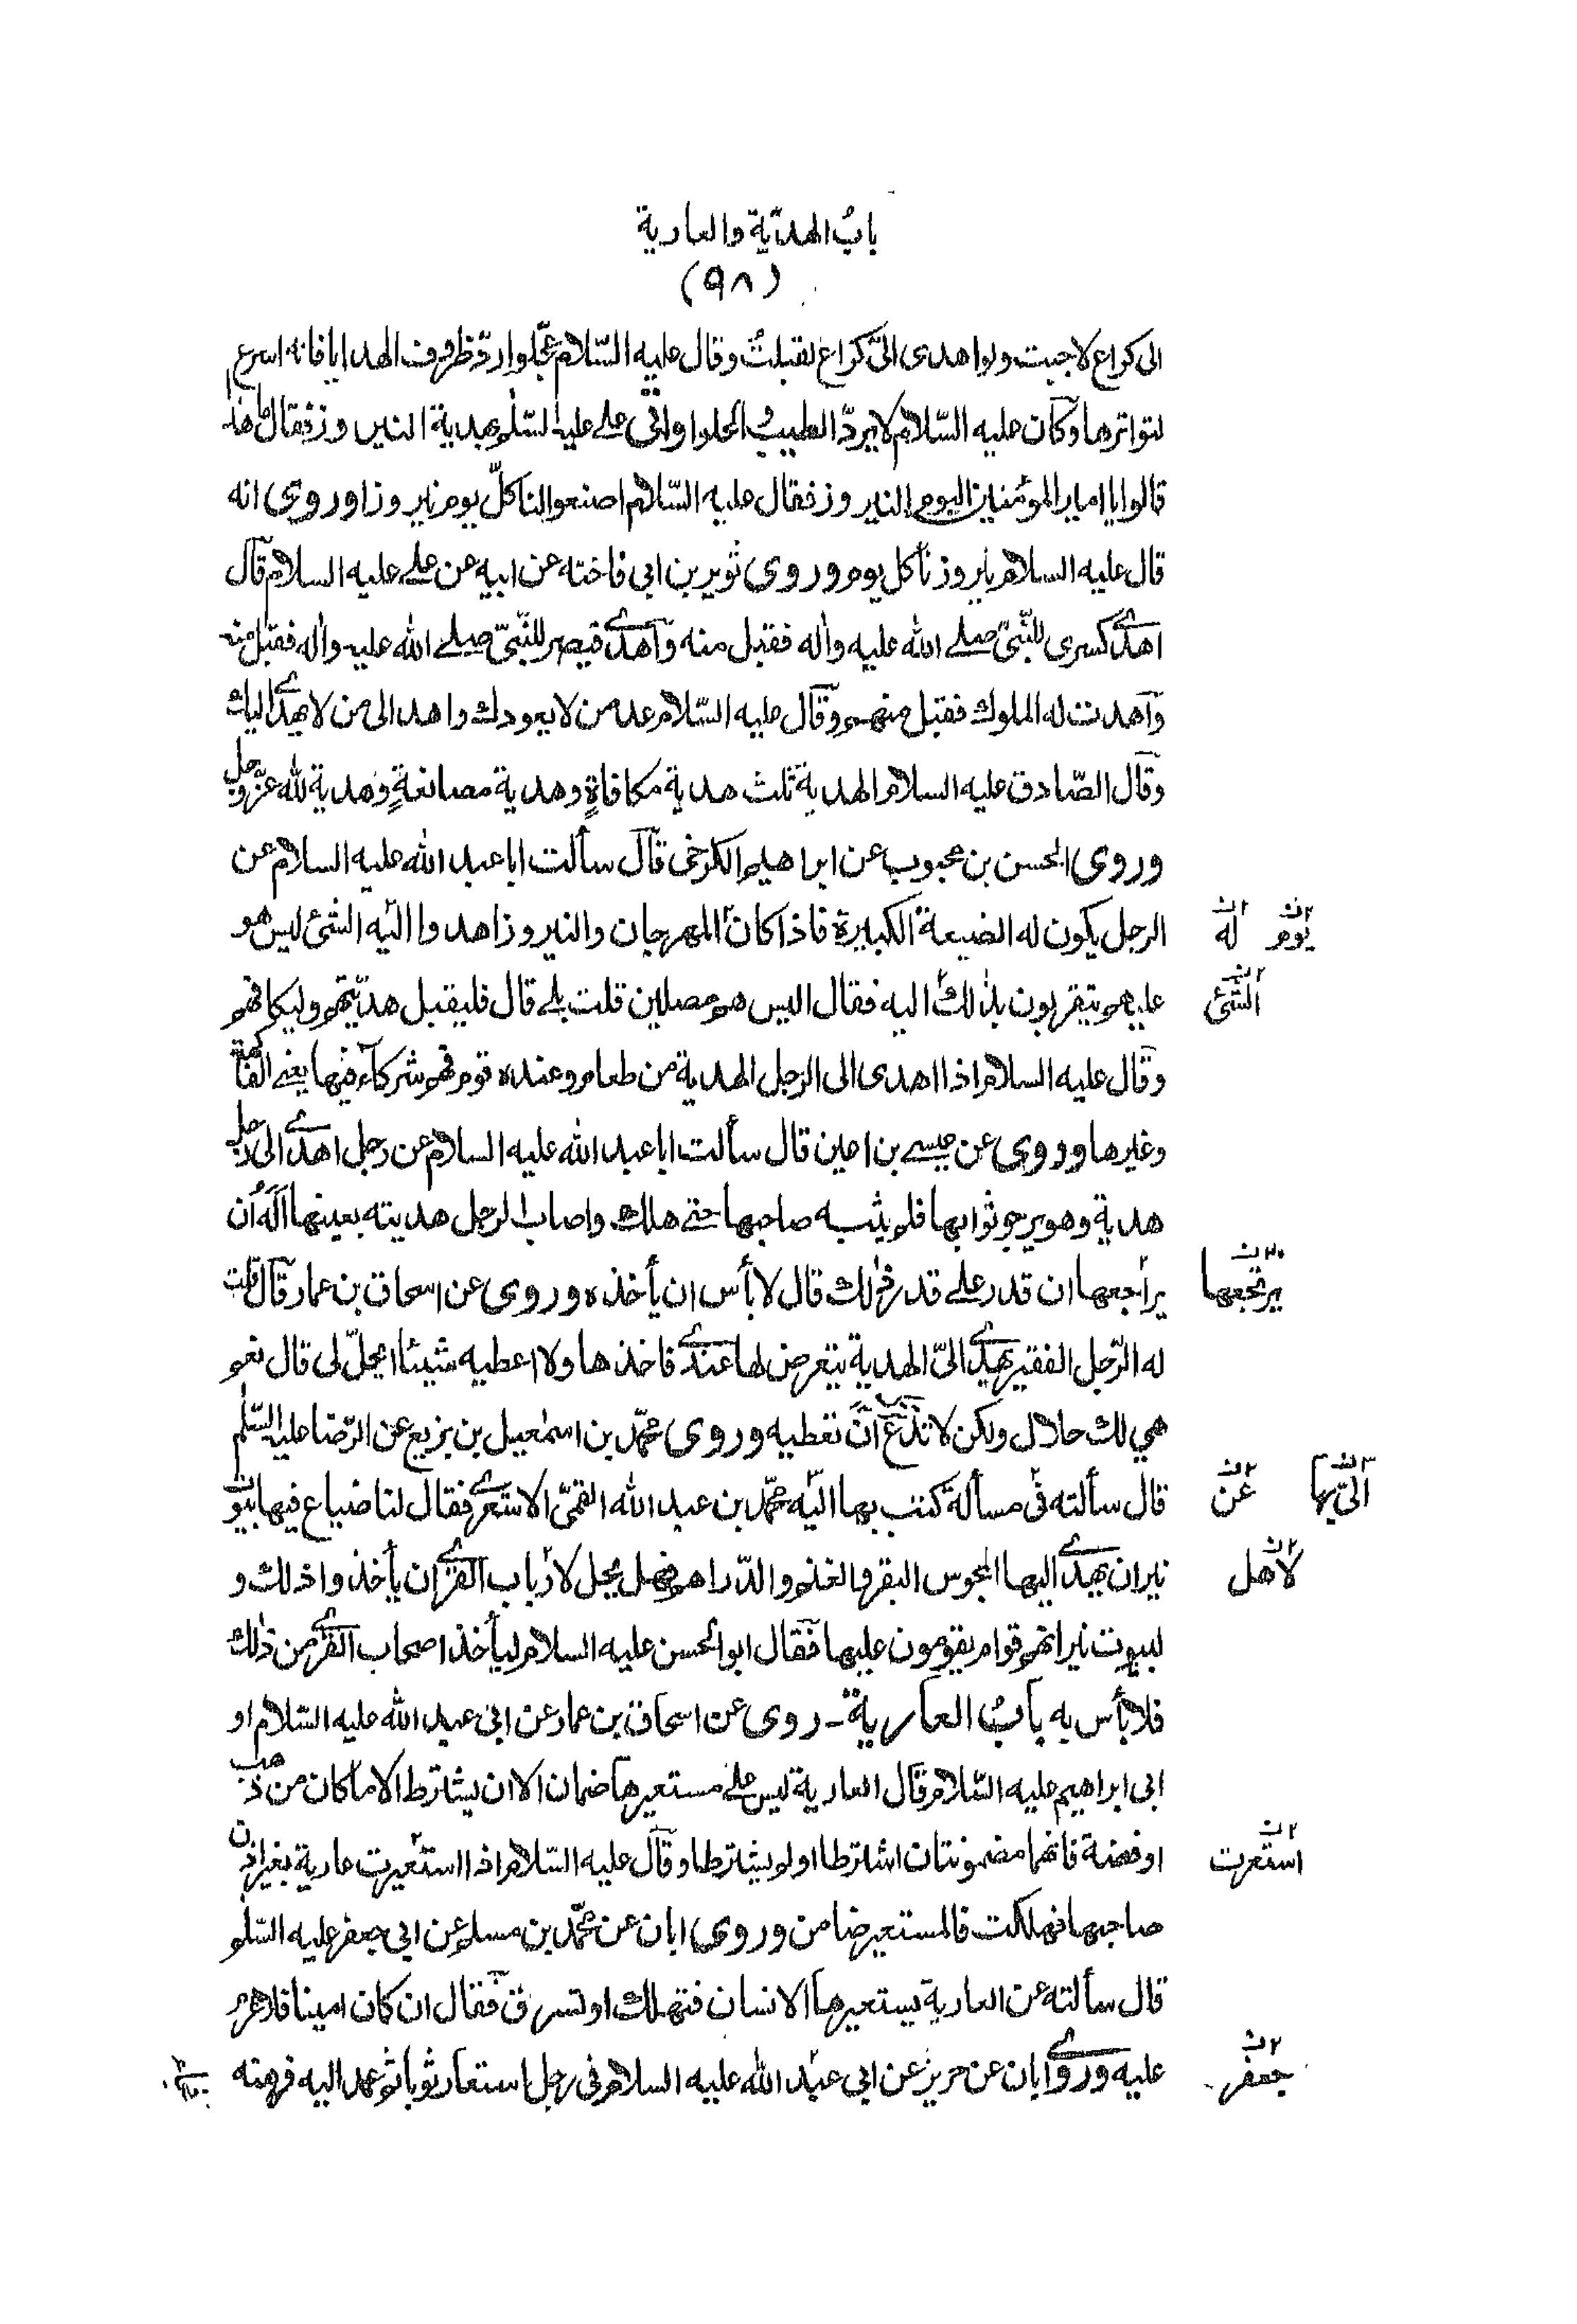 باب الهديّة والعارية
(٩٨)
الى كراع لاجبت ولو اهدى الىّ كراع لقبلتُ وقال عليه السّلام عجّلوا ردّ ظروف الهدايا فانه اسرع
لتواترها وكان عليه السّلام لا يردّ الطيب والحلوا واتى علي عليه السّلم بهدية النيروز فقال ما هذا
قالوا يا امير المؤمنين اليوم النيروز فقال عليه السّلام اصنعوا لنا كلّ يوم نيروزا وروى انه
قال عليه السلام نيروزنا كل يوم وروى ثوير بن ابى فاخته عن ابيه عن علي عليه السلام قال
اهدى كسرى للنّبىّ صلى الله عليه واله فقبل منه واهدى قيصر للنّبىّ صلى الله عليه واله فقبل منه
واهدت له الملوك فقبل منهم وقال عليه السّلام عد من لا يعودك واهد الى من لا يهدى اليك
وقال الصّادق عليه السلام الهدية ثلث هدية مكافاةٍ وهدية مصانعةٍ وهدية لله عزّ وجل
وروى الحسن بن محبوب عن ابراهيم الكرخى قال سألت ابا عبد الله عليه السلام عن
الرجل يكون له الضيعة الكبيرة فاذا كان المهرجان والنيروز اهدوا اليه الشئ ليس هو
يوم له
عليهم يتقربون بذلك اليه فقال اليس هم مصلين قلت بلى قال فليقبل هديّتهم وليكافهم
الشّئ
وقال عليه السلام اذا اهدى الى الرجل الهدية من طعام وعنده قوم فهم شركآء فيها يعنى الفاكهة
وغيرها وروى عن عيسى بن اعين قال سألت ابا عبد الله عليه السلام عن رجل اهدى الى رجل
هدية وهو يرجو ثوابها فلم يثبه صاحبها حتى هلك واصاب الرجل هديته بعينها اله ان
يراجعها ان قدر على قدر ذلك قال لا بأس ان يأخذه وروى عن اسحاق بن عمار قال قلت
يرتجعها
له الرّجل الفقير يهدى الىّ الهدية يتعرض لما عندى فاخذها ولا اعطيه شيئا ايحلّ لى قال نعم
هى لك حلال ولكن لا تدع ان تعطيه وروى محمّد بن اسمعيل بن بزيع عن الرّضا عليه السّلم
قال سألته فى مسألة كتب بها اليّه محمّد بن عبد الله القمىّ الاشعرى فقال لنا ضياع فيها بيوت
عن الىّ بها
نيران يهدى اليها المجوس البقر والغنم والدّراهم فهل يحل لارباب القرى ان يأخذوا ذلك و
لاهل
لبيوت نيرانهم قوام يقومون عليها فقال ابو الحسن عليه السلام ليأخذ اصحاب القرى من ذلك
فلا بأس به باب العارية ـ روى عن اسحاق بن عمار عن ابى عبد الله عليه السّلام او
ابى ابراهيم عليه السّلام قال العارية ليس على مستعيرها ضمان الا ان يشترط الا ما كان من ذهب
او فضة فانهما مضمونتان اشترطا او لم يشترطا وقال عليه السّلام اذا استعيرت عارية بغير اذن
استعرت
صاحبها فهلكت فالمستعير ضامن وروى ابان عن محمّد بن مسلم عن ابى جعفر عليه السّلم
قال سألته عن العارية يستعيرها الانسان فتهلك او تسرق فقال ان كان امينا فلا غرم
عليه وروى ابان عن حريز عن ابى عبد الله عليه السلام فى رجل استعار ثوبا ثم عمد اليه فرهنه
جعفر